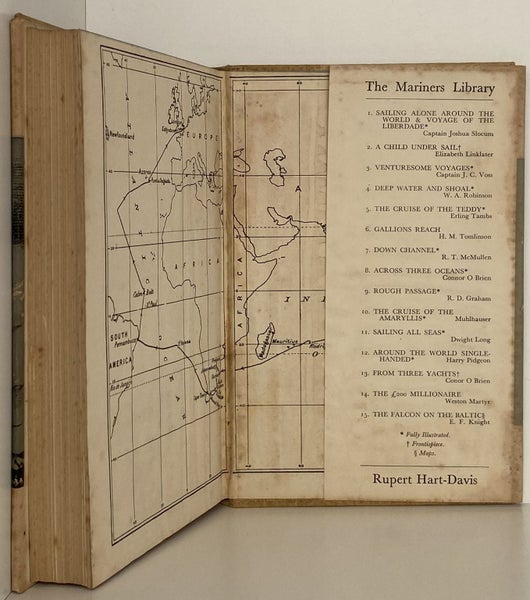 Newfoundland
EUROPE
Azores
AFRICA
SOUTH
Pernambuco
AMERICA
Rio de Janeiro
St Helena
Cape Town
AFRICA
A
IN
Madagascar
Mauritius
O
The Mariners Library
1. SAILING ALONE AROUND THE
WORLD & VOYAGE OF THE
LIBERDADE*
Captain Joshua Slocum
2. A CHILD UNDER SAIL†
Elizabeth Linklater
3. VENTURESOME VOYAGES*
Captain J. C. Voss
4. DEEP WATER AND SHOAL*
W. A. Robinson
5. THE CRUISE OF THE TEDDY*
Erling Tambs
6. GALLIONS REACH
H. M. Tomlinson
7. DOWN CHANNEL*
R. T. McMullen
8. ACROSS THREE OCEANS*
Connor O Brien
9. ROUGH PASSAGE*
R. D. Graham
10. THE CRUISE OF THE
AMARYLLIS*
Muhlhauser
11. SAILING ALL SEAS*
Dwight Long
12. AROUND THE WORLD SINGLE-
HANDED*
Harry Pidgeon
13. FROM THREE YACHTS†
Conor O Brien
14. THE £200 MILLIONAIRE
Weston Martyr
15. THE FALCON ON THE BALTIC§
E. F. Knight
* Fully Illustrated.
† Frontispiece.
§ Maps.
Rupert Hart-Davis